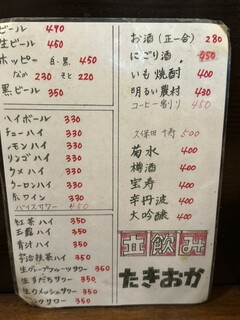 ビール 490
生ビール 450
ホッピー 白・黒 450
なか 230 そと 220
黒ビール 350
ハイボール 330
チューハイ 330
レモンハイ 330
リンゴハイ 330
ウメハイ 330
ウーロンハイ 330
赤ワイン 330
バイスサワー 450
紅茶ハイ 350
玉露ハイ 350
青汁ハイ 350
宇治抹茶ハイ 350
生グレープフルーツサワー 350
生すだちサワー 350
生ウメッシュサワー 350
サワー 350
お酒(正一合) 280
にごり酒 350
いも焼酎 400
明るい農村 430
コーヒー割り
久保田 千寿 500
菊水 400
樽酒 400
宝寿 400
辛丹波 400
大吟醸 400
立飲み
たきおか